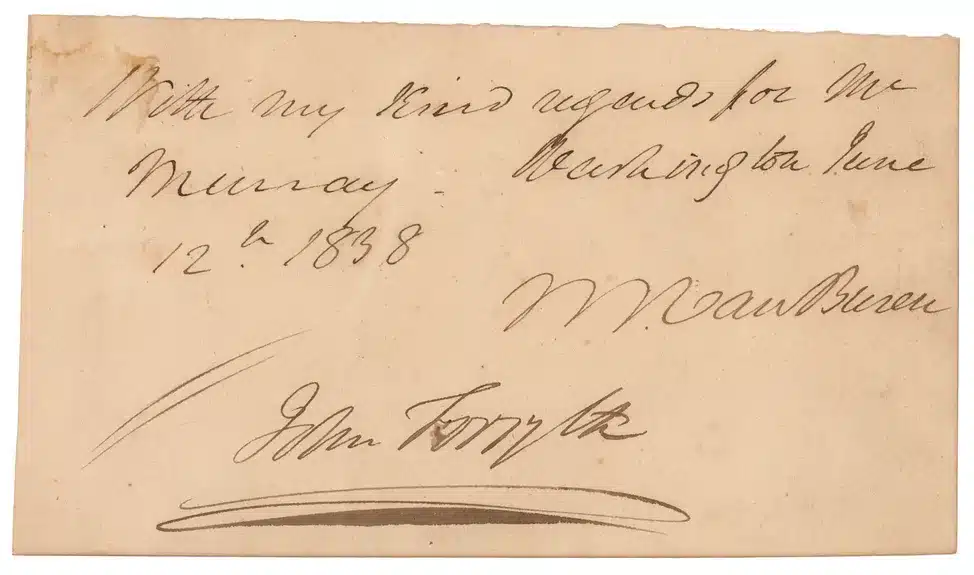 With my Kind regards for Mr
Murray - Washington June
12th 1838
M Van Buren
John Forsyth